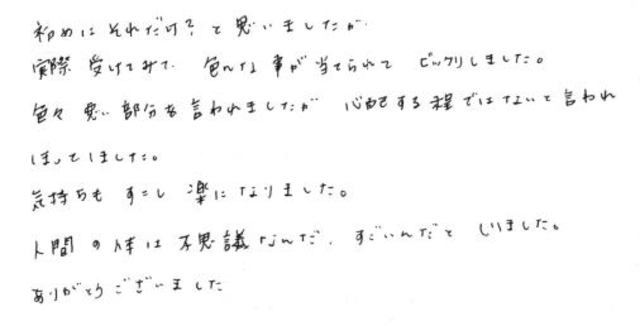 初めは それだけ？ と思いましたが
実際 受けてみて 色んな 事が 当てられて ビックリしました。
色々 悪い 部分を 言われましたが 心配する程ではないと言われ
ほっとしました。
気持ちも すこし 楽になりました。
人間の体は 不思議なんだ、すごいんだと 思いました。
ありがとうございました